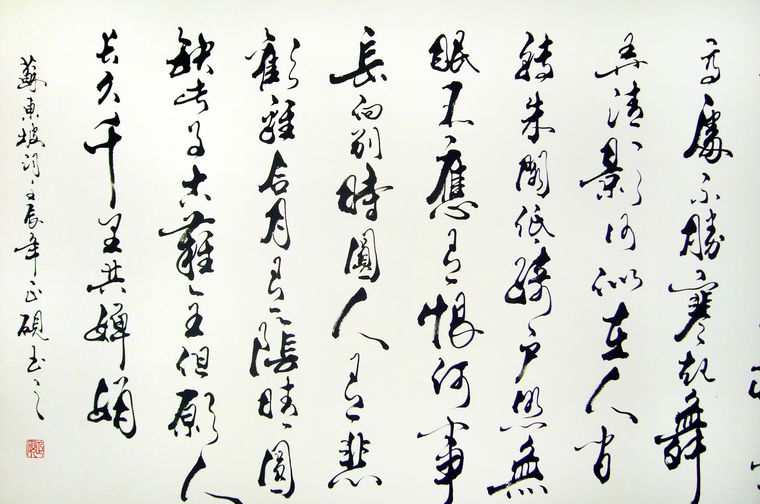 高處不勝寒起舞
弄清影何似在人間
轉朱閣低綺戶照無
眠不應有恨何事
長向別時圓人有悲
歡離合月有陰晴圓
缺此事古難全但願人
長久千里共嬋娟
蘇東坡詞壬辰年正硯書之